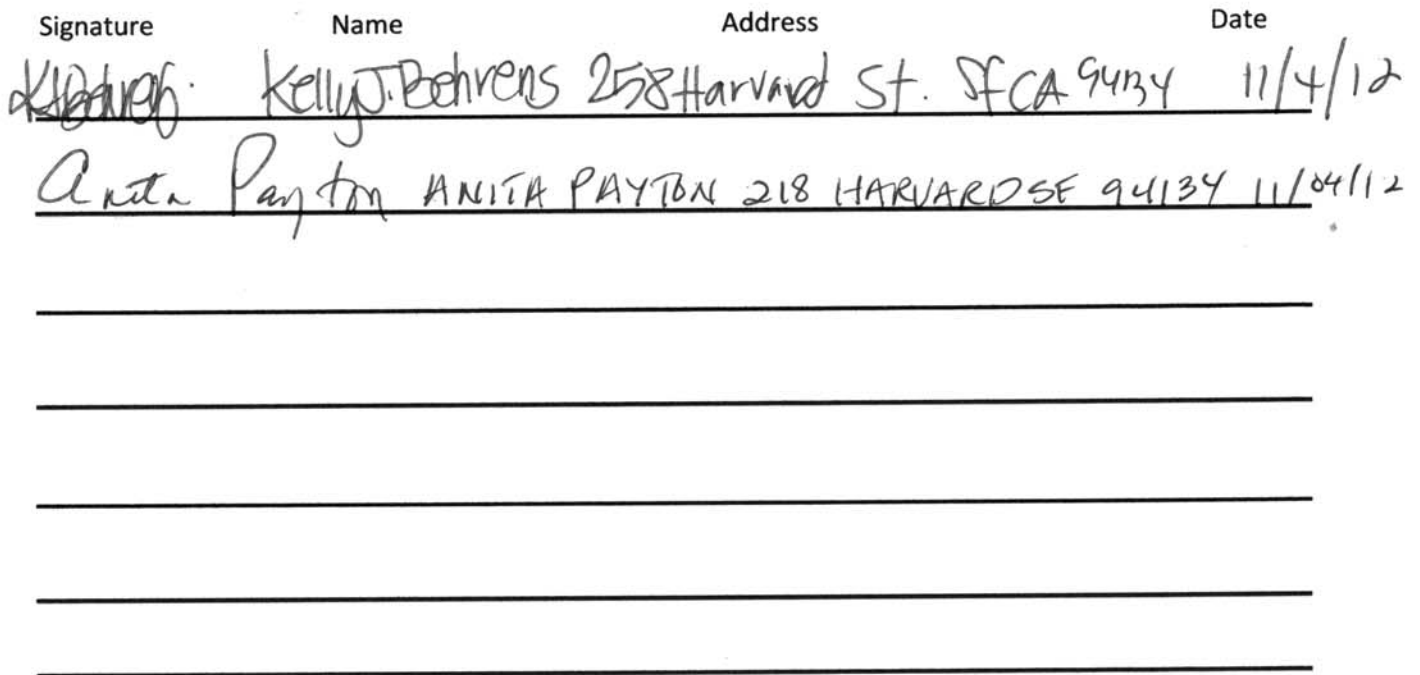 Signature Name Address Date
KJBehrens. Kelly J. Behrens 258 Harvard St. SF CA 94134 11/4/12
Anita Payton ANITA PAYTON 218 HARVARD SE 94134 11/04/12